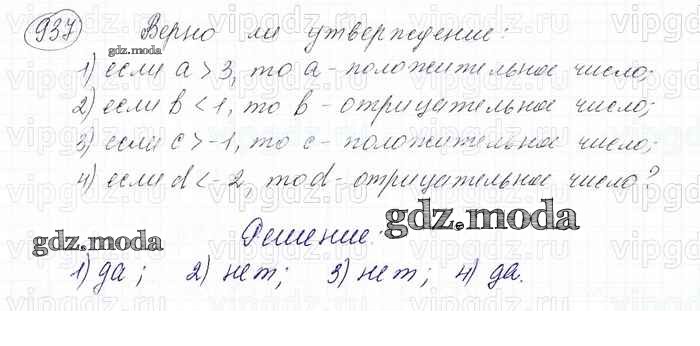 937 Верно ли утверждение:
gdz.moda
1) если a > 3, то a - положительное число;
2) если b < 1, то b - отрицательное число;
3) если c > -1, то c - положительное число;
4) если d < -2, то d - отрицательное число?
gdz.moda
Решение:
gdz.moda
1) да; 2) нет; 3) нет; 4) да.